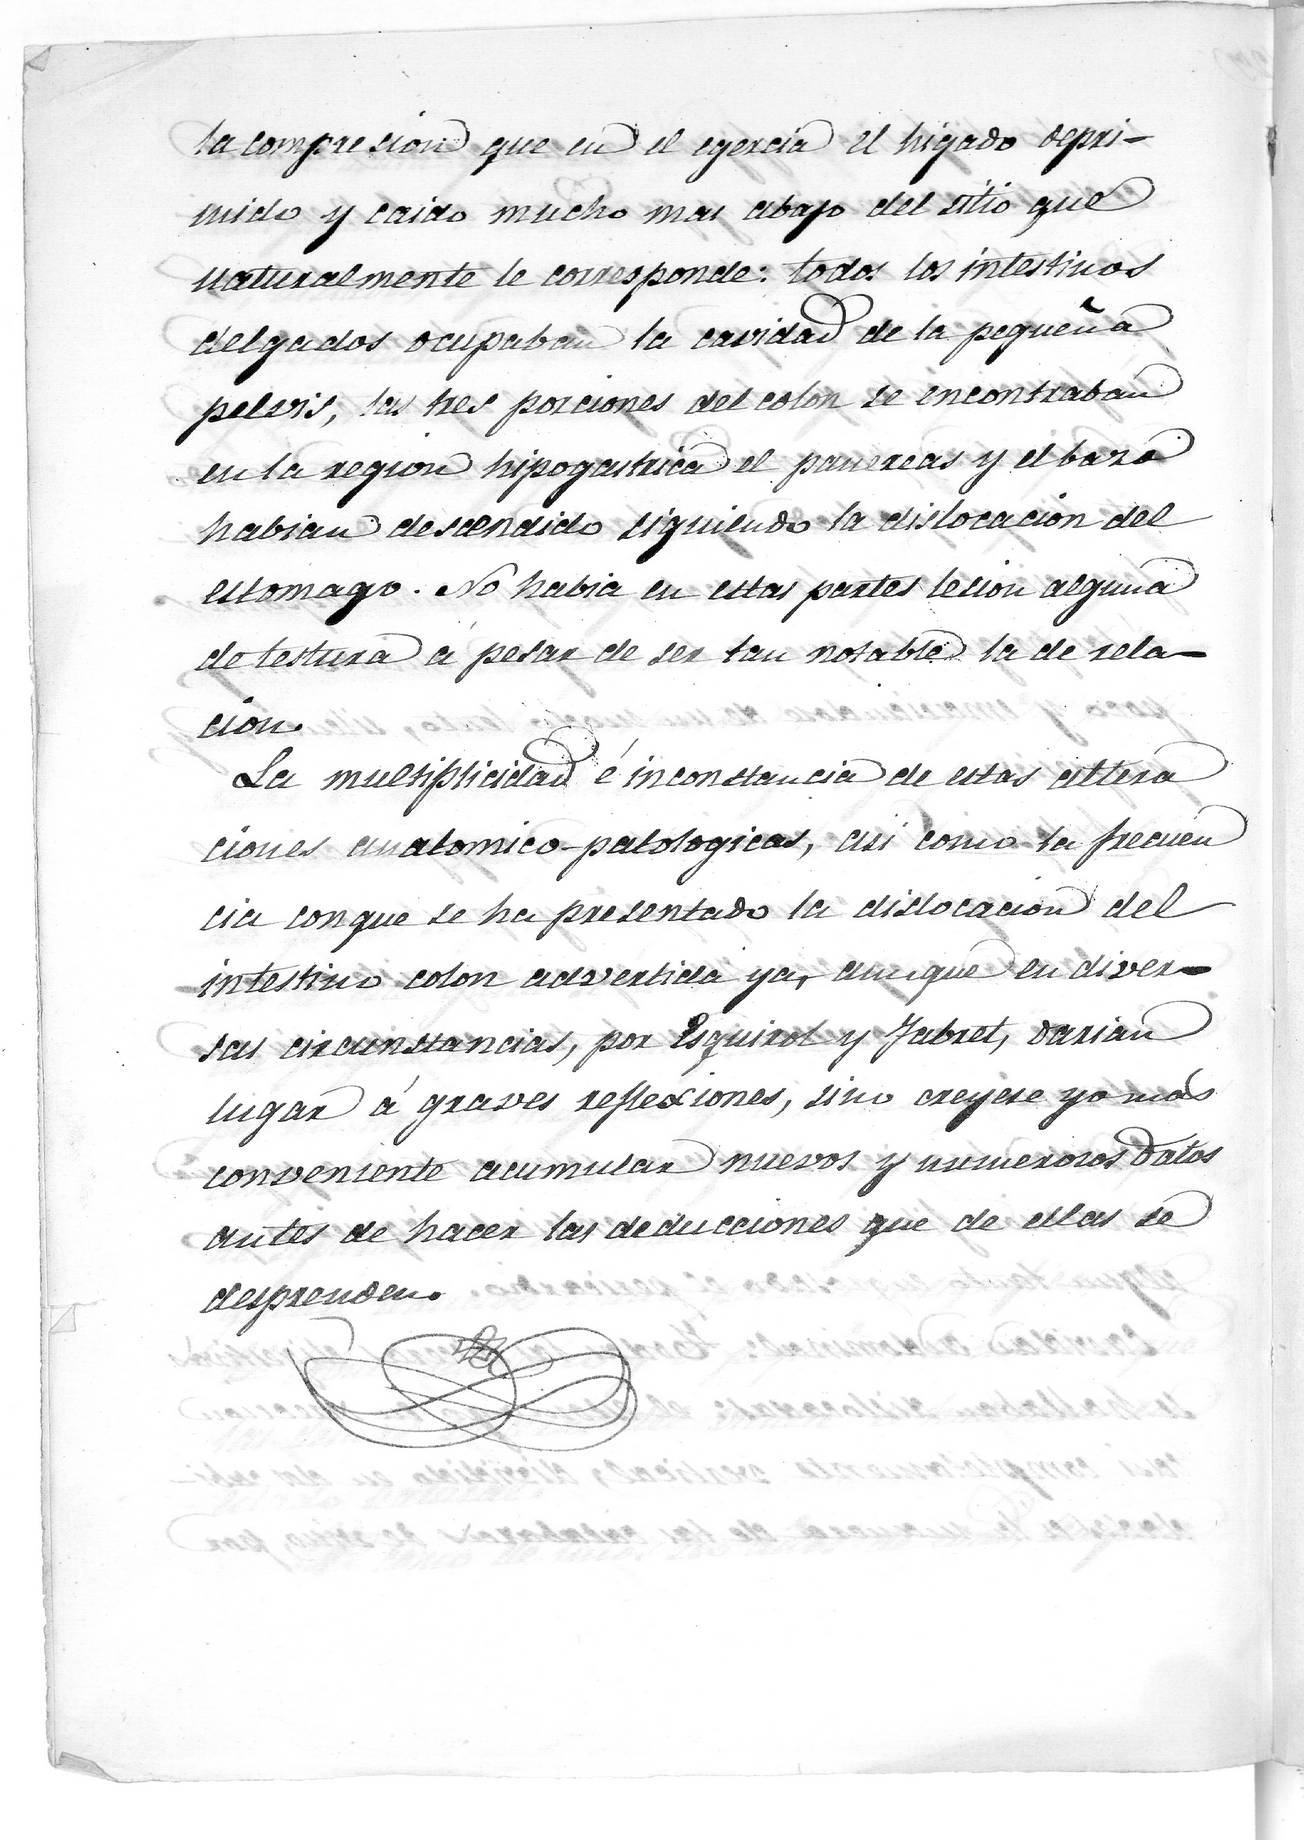 la compresion que en el egercia el higado depri-
mido y caido mucho mas abajo del sitio que
naturalmente le corresponde: todos los intestinos
delgados ocupaban la cavidad de la pequeña
pelvis, las tres porciones del colon se encontraban
en la region hipogastrica el pancreas y el bazo
habian descendido siguiendo la dislocacion del
estomago. No habia en estas partes lesion alguna
de testura á pesar de ser tan notable la de rela-
cion.
La multiplicidad é inconstancia de estas altera
ciones anatomico-patologicas, asi como la frecuen
cia conque se ha presentado la dislocacion del
intestino colon advertida ya, aunque en diver-
sas circunstancias, por Esquirol y Falret, darian
lugar á graves reflexiones, sino creyese yo mas
conveniente acumular nuevos y numerosos datos
antes de hacer las deducciones que de ellas se
desprenden.